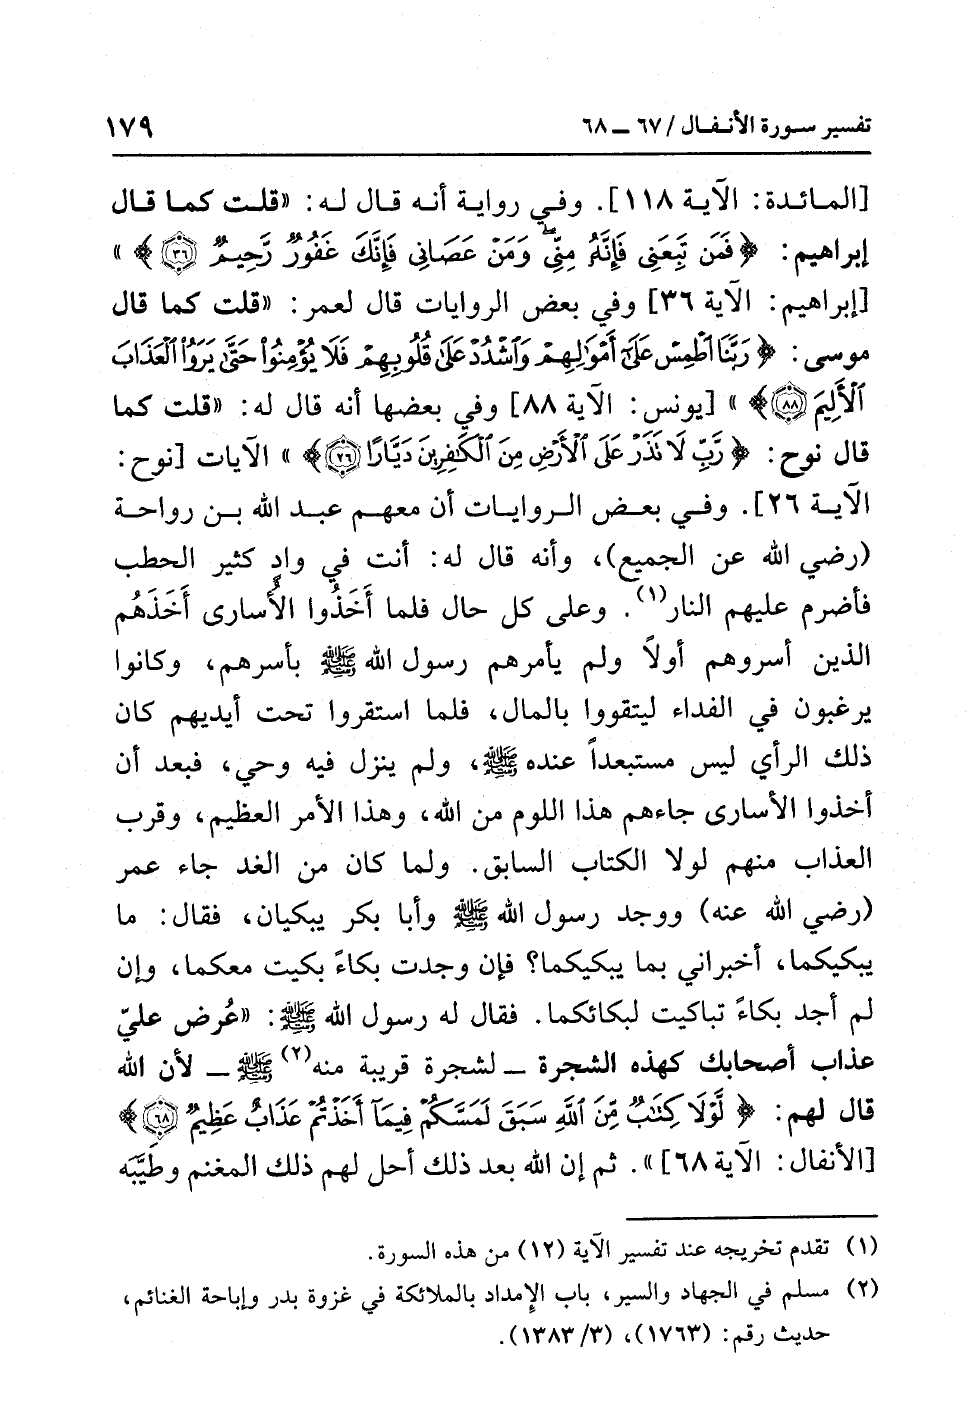 تفسير سورة الأنفال / ٦٧ ــ ٦٨
١٧٩
[المائدة: الآية ١١٨]. وفي رواية أنه قال له: «قلت كما قال
إبراهيم: ﴿فَمَن تَبِعَنِي فَإِنَّهُ مِنِّي ۖ وَمَنْ عَصَانِي فَإِنَّكَ غَفُورٌ رَّحِيمٌ ٣٦﴾»
[إبراهيم: الآية ٣٦] وفي بعض الروايات قال لعمر: «قلت كما قال
موسى: ﴿رَبَّنَا اطْمِسْ عَلَىٰ أَمْوَالِهِمْ وَاشْدُدْ عَلَىٰ قُلُوبِهِمْ فَلَا يُؤْمِنُوا حَتَّىٰ يَرَوُا الْعَذَابَ
الْأَلِيمَ ٨٨﴾» [يونس: الآية ٨٨] وفي بعضها أنه قال له: «قلت كما
قال نوح: ﴿رَّبِّ لَا تَذَرْ عَلَى الْأَرْضِ مِنَ الْكَافِرِينَ دَيَّارًا ٢٦﴾» الآيات [نوح:
الآية ٢٦]. وفي بعض الروايات أن معهم عبد الله بن رواحة
(رضي الله عن الجميع)، وأنه قال له: أنت في وادٍ كثير الحطب
فأضرم عليهم النار(١). وعلى كل حال فلما أَخَذُوا الأُسارى أَخَذَهُم
الذين أسروهم أولاً ولم يأمرهم رسول الله ﷺ بأسرهم، وكانوا
يرغبون في الفداء ليتقووا بالمال، فلما استقروا تحت أيديهم كان
ذلك الرأي ليس مستبعداً عنده ﷺ، ولم ينزل فيه وحي، فبعد أن
أخذوا الأسارى جاءهم هذا اللوم من الله، وهذا الأمر العظيم، وقرب
العذاب منهم لولا الكتاب السابق. ولما كان من الغد جاء عمر
(رضي الله عنه) ووجد رسول الله ﷺ وأبا بكر يبكيان، فقال: ما
يبكيكما، أخبراني بما يبكيكما؟ فإن وجدت بكاءً بكيت معكما، وإن
لم أجد بكاءً تباكيت لبكائكما. فقال له رسول الله ﷺ: «عُرض عليّ
عذاب أصحابك كهذه الشجرة ــ لشجرة قريبة منه(٢) ﷺ ــ لأن الله
قال لهم: ﴿لَّوْلَا كِتَابٌ مِّنَ اللَّهِ سَبَقَ لَمَسَّكُمْ فِيمَا أَخَذْتُمْ عَذَابٌ عَظِيمٌ ٦٨﴾
[الأنفال: الآية ٦٨]». ثم إن الله بعد ذلك أحل لهم ذلك المغنم وطَيَّبَه
(١) تقدم تخريجه عند تفسير الآية (١٢) من هذه السورة.
(٢) مسلم في الجهاد والسير، باب الإمداد بالملائكة في غزوة بدر وإباحة الغنائم،
حديث رقم: (١٧٦٣)، (٣/ ١٣٨٣).